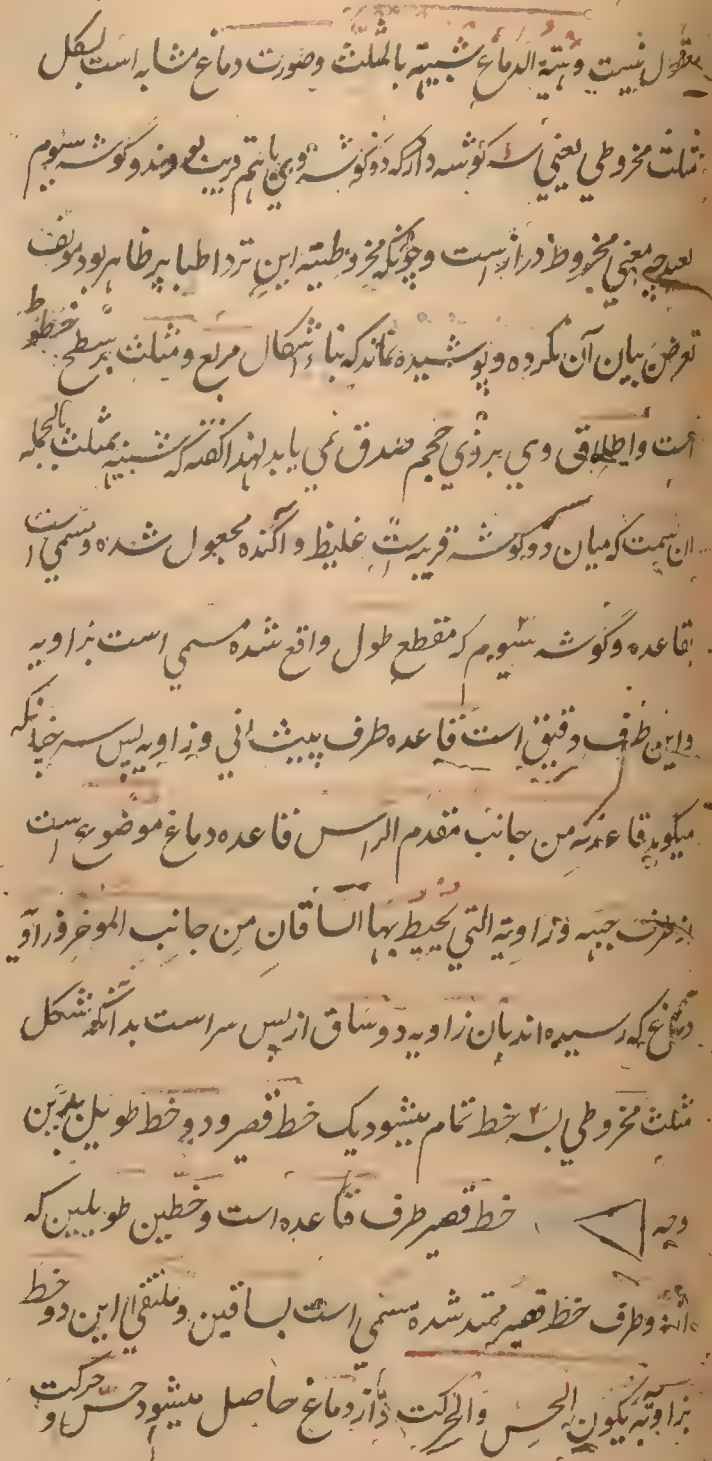 معقول نیست وهیئة الدماغ شبیهة بالمثلث وصورت دماغ مشابه است بشکل
مثلث مخروطی یعنی سه کوشه دارد که دو کوشه وی باهم قریب بود وکوشه سیوم
بعید چه معنی مخروط دراز است وچونکه مخروطیته این نزد اطبا پر ظاهر بود مولف
تعرض بیان آن نکرده وپوشیده نماند که بناء اشکال مربع ومثلث بر سطح خطوط
است واطلاق وی بر ذی حجم صدق نمی یابد لهذا کفته که شبیه بمثلث بالجمله
آن سمت که میان دو کوشه قریب است غلیظ وآکنده مجعول شده ومسمی است
بقاعده وکوشه سیوم که مقطع طول واقع شده مسمی است بزاویه
واین طرف دقیق است قاعده طرف پیشانی وزاویه پس سر چنانکه
میکوید قاعدته من جانب مقدم الراس قاعده دماغ موضوع است
از طرف جبهه وزاویته التی یحیط بها الساقان من جانب الموخر وزاویه
دماغ که رسیده اند بان زاویه دو ساق از پس سر است بدانکه شکل
مثلث مخروطی بسه خط تمام میشود یک خط قصیر ودو خط طویل بدین
وجه خط قصیر طرف قاعده است وخطین طویلین که
از دو طرف خط قصیر ممتد شده مسمی است بساقین وملتقی این دو خط
بزاویه یکون الحس والحرکت واز دماغ حاصل میشود حس وحرکت